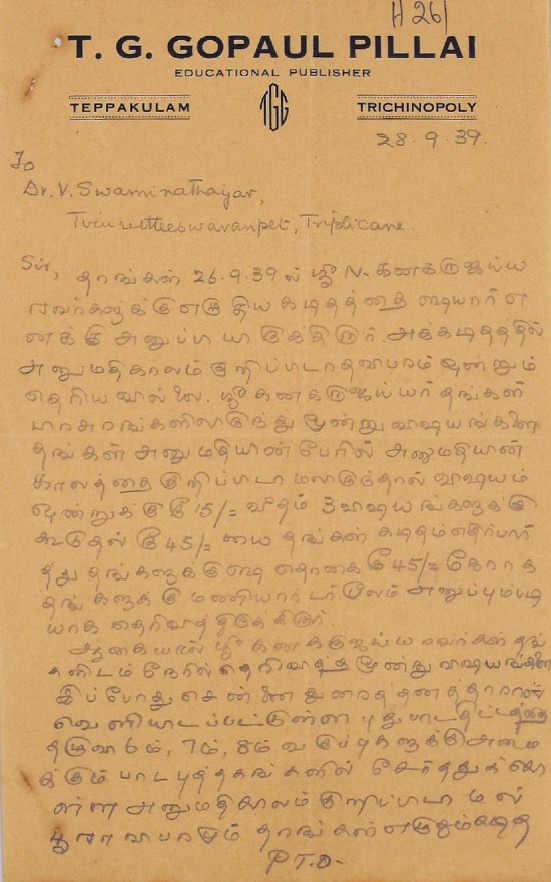 H 261
T. G. GOPAUL PILLAI
EDUCATIONAL PUBLISHER
TEPPAKULAM TGG TRICHINOPOLY
28.9.39.
To
Dr. V. Swaminathaiyar,
Tiruvetteeswaranpet, Triplicane.
Sir, தாங்கள் 26.9.39 ல் ஸ்ரீ N. கனகராஜய்ய
ரவர்களுக்கு எழுதிய கடிதத்தை ஷையார் எ
னக்கு அனுப்பியிருக்கிறார் அக்கடிதத்தில்
அனுமதிகாலம் குறிப்பிடாத விபரம் ஒன்றும்
தெரியவில்லை. ஸ்ரீ கனகராஜய்யர் தங்கள்
மூன்று விஷயங்களை
தங்கள் அனுமதியின் பேரில் அனுமதியின்
காலத்தை குறிப்பிடாமலிருந்தால் விஷயம்
ஒன்றுக்கு ரூ 15/= வீதம் 3 விஷயங்களுக்கு
கூடுதல் ரூ 45/= யை தங்கள் கடிதம் எதிர்பார்
த்து தங்களுக்கு ஷை தொகை ரூ 45/=
தங்களுக்கு மணியார்டர் மூலம் அனுப்பும்படி
யாக தெரிவித்திருக்கிறார்.
ஆகையால் ஸ்ரீ கனகராஜய்யரவர்கள் தங்
களிடம் நேரில் தெரிவித்த மூன்று விஷயங்களை
இப்போது சென்னை துரைத்தனத்தாரால்
வெளியிடப்பட்டுள்ள புது பாடதிட்டத்தை
தழுவி 6ம், 7ம், 8ம் வகுப்புகளுக்கு அமை
க்கும் பாட புத்தகங்களில் சேர்த்துக்கொ
ள்ள அனுமதிகாலம் குறிப்பிடாமல்
பூரா விபரமும் தாங்கள் எழுதும் கடித
P.T.O.